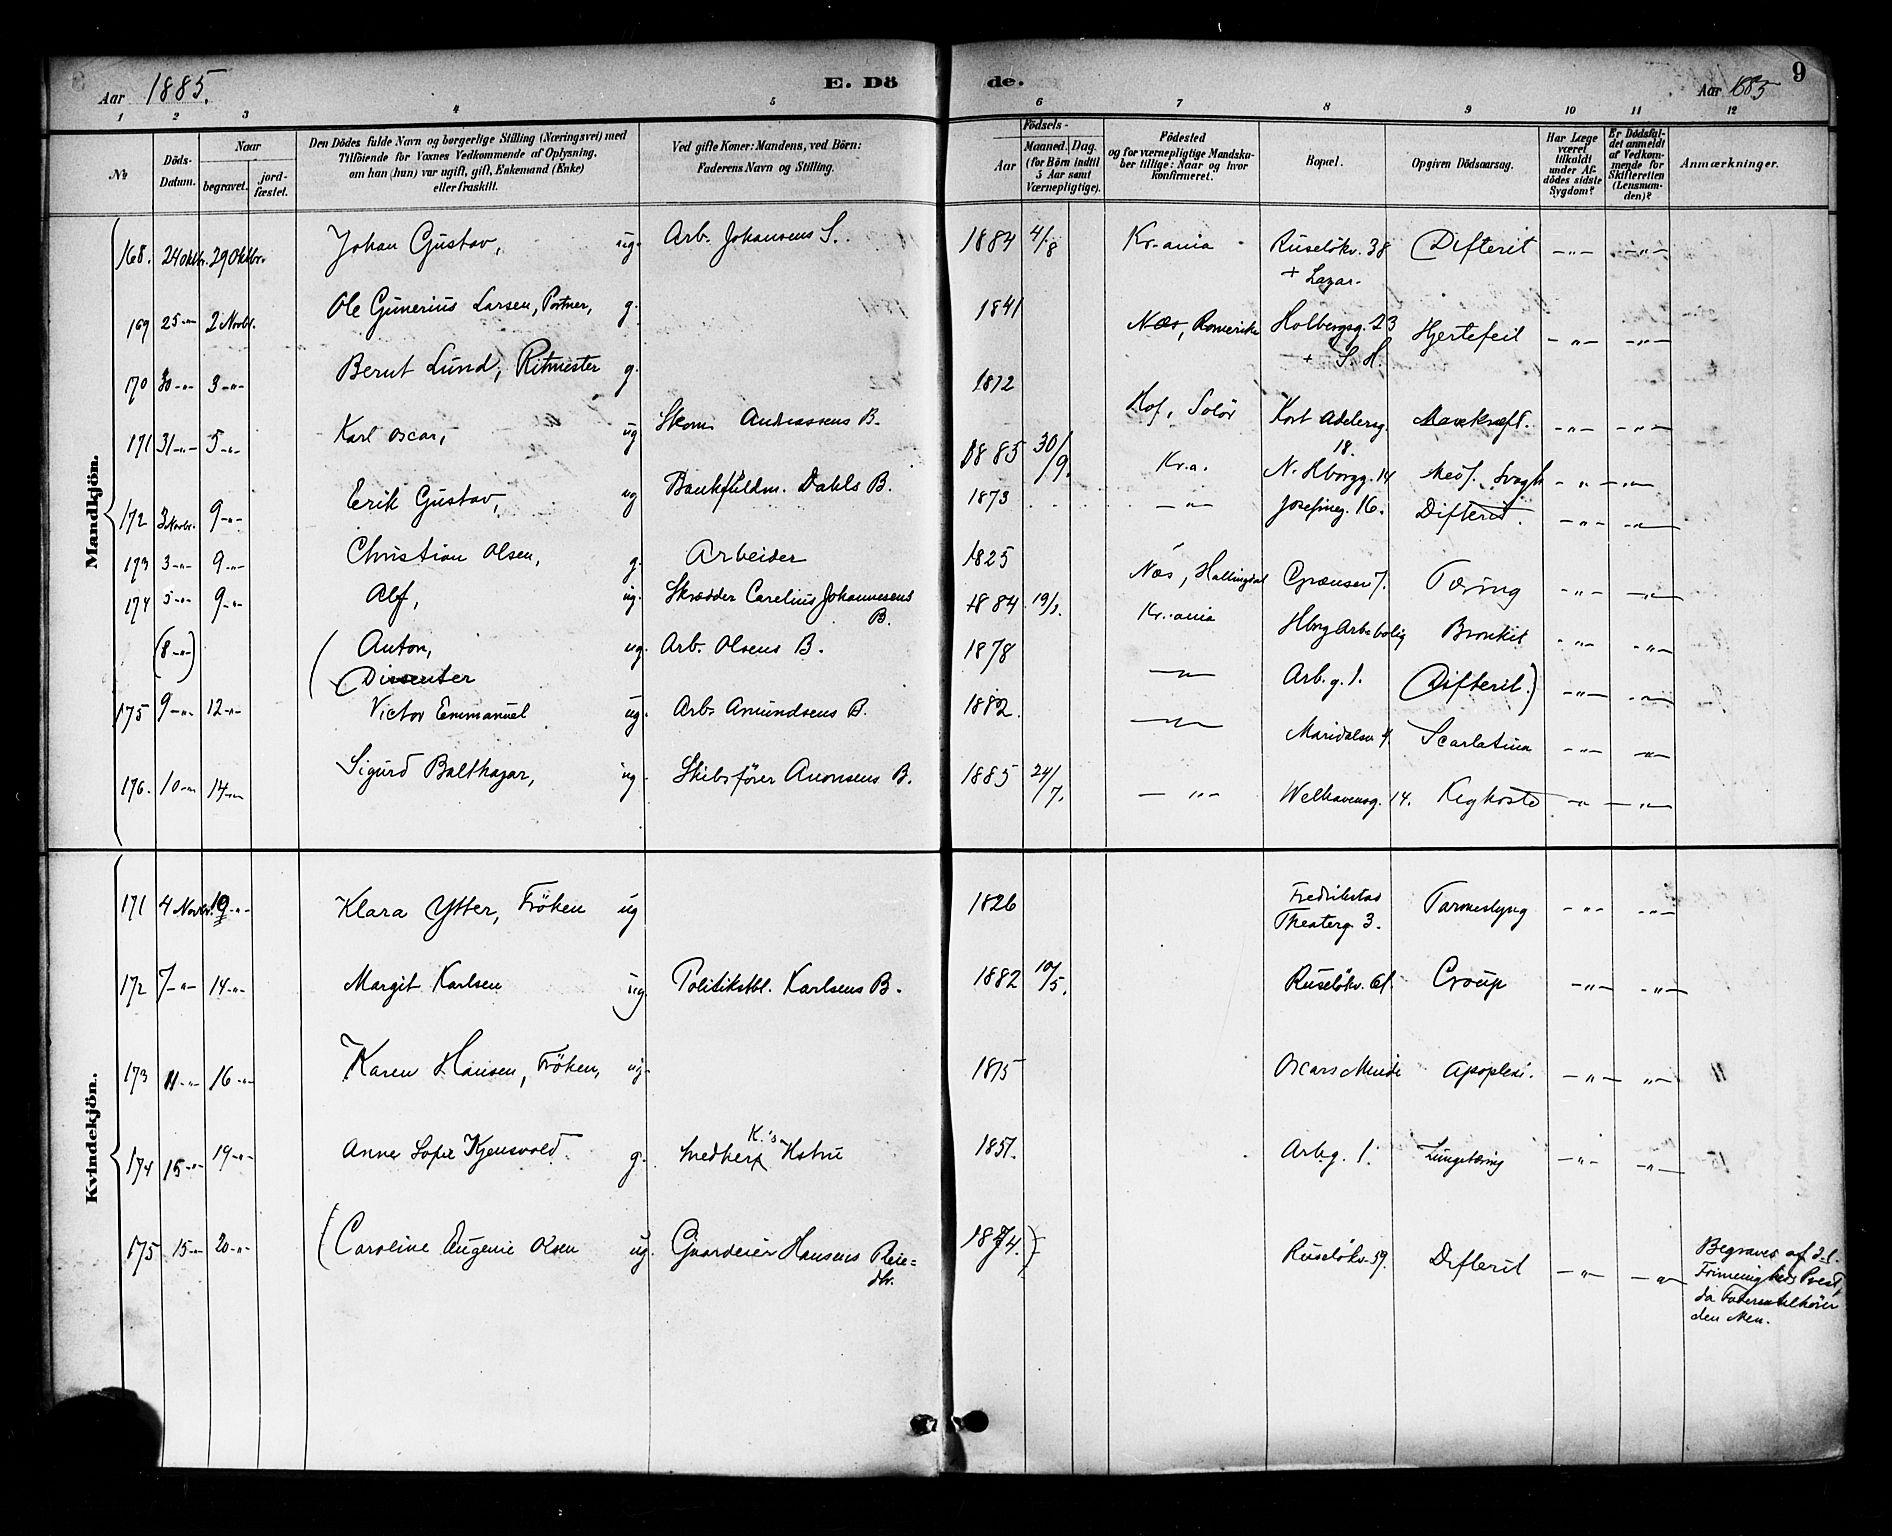 Aar 1885.
E. Döde.
Aar 1885
9
1 2 3 4 5 6 7 8 9 10 11 12
No
Döds-Datum.
Naar
begravet.
jordfæstet.
Den Dödes fulde Navn og borgerlige Stilling (Næringsvei) med Tilföiende for Voxnes Vedkommende af Oplysning, om han (hun) var ugift, gift, Enkemand (Enke) eller fraskilt.
Ved gifte Koner: Mandens, ved Börn: Faderens Navn og Stilling.
Födsels-
Aar
Maaned. Dag.
(for Börn indtil 5 Aar samt Værnepligtige).
Födested og for værnepligtige Mandskaber tillige: Naar og hvor konfirmeret.
Bopæl.
Opgiven Dödsaarsag.
Har Læge været tilkaldt under Afdödes sidste Sygdom?
Er Dödsfaldet anmeldt af Vedkommende for Skifteretten (Lensmanden)?
Anmærkninger.
Mandkjön.
168. 24 Oktbr. 29 Oktbr. Johan Gustav, ug. Arb. Johansens S. 1884 4/8 Kr.ania Ruselökv. 38 + Lazar. Difterit -"- -"-
169 25-"- 2 Novbr. Ole Gunerius Larsen, Portner, g. 1841 Næs, Romerike Holbergsg. 23 + S. H. Hjertefeil -"- -"-
170 30-"- 3-"- Bernt Lund, Ritmester g. 1812 Hof, Solör Kort Adelersg. 18. Mavekræft. -"- -"-
171 31-"- 5-"- Karl Oscar, ug Skom. Andreasens B. 1885 30/9. Kr.a. N. Hborgg. 14 Med f. Svagh -"- -"-
172 3 Novbr. 9-"- Erik Gustav, ug Bankfuldm. Dahls B. 1873 -"- Josefineg. 16. Difterit. -"- -"-
173 3-"- 9-"- Christian Olsen, g. Arbeider 1825 Næs, Hallingdal Grænsen 7. Tæring -"- -"-
174 5-"- 9-"- Alf, ug. Skrædder Carelius Johannesens B. 1884 19/1. Kr.ania Hbrg Arb.bolig Bronkit -"- -"-
(8-"-) (Anton, ug. Arb. Olsens B. 1878 -"- Arb.g. 1. (Difterit.) -"- -"-
(Dissenter
175 9-"- 12-"- Victor Emmanuel ug. Arb. Amundsens B. 1882. -"- Maridalsv 4. Scarlatina -"- -"-
176. 10-"- 14-"- Sigurd Balthazar, ug. Skibsförer Anonsens B. 1885 24/7. -"- Welhavensg. 14. Kighoste -"- -"-
Kvindekjön.
171 4 Novbr. 10-"- Klara Ytter, Fröken ug 1826 Fredrikstad Theaterg. 3. Tarmeslyng -"- -"-
172 7-"- 14-"- Margit Karlsen ug. Politikstbl. Karlsens B. 1882 10/5. Ruselökv. 61. Croup -"- -"-
173 11-"- 16-"- Karen Hansen, Fröken, ug. 1815 Oscars Minde Apoplexi. -"- -"-
174 15-"- 19-"- Anne Sofie Kjensvold. g. Smedherr K.'s Hstru 1851. Arb.g. 1. Lungetæring -"- -"-
175 15-"- 20-"- (Caroline Eugenie Olsen ug. Guardeier Hansens Pleiedtr. 1874.) Ruselökv. 59. Difterit -"- -"- Begraves af d.l. Frimenigheds Prest, da Faderen tilhörer den Men.